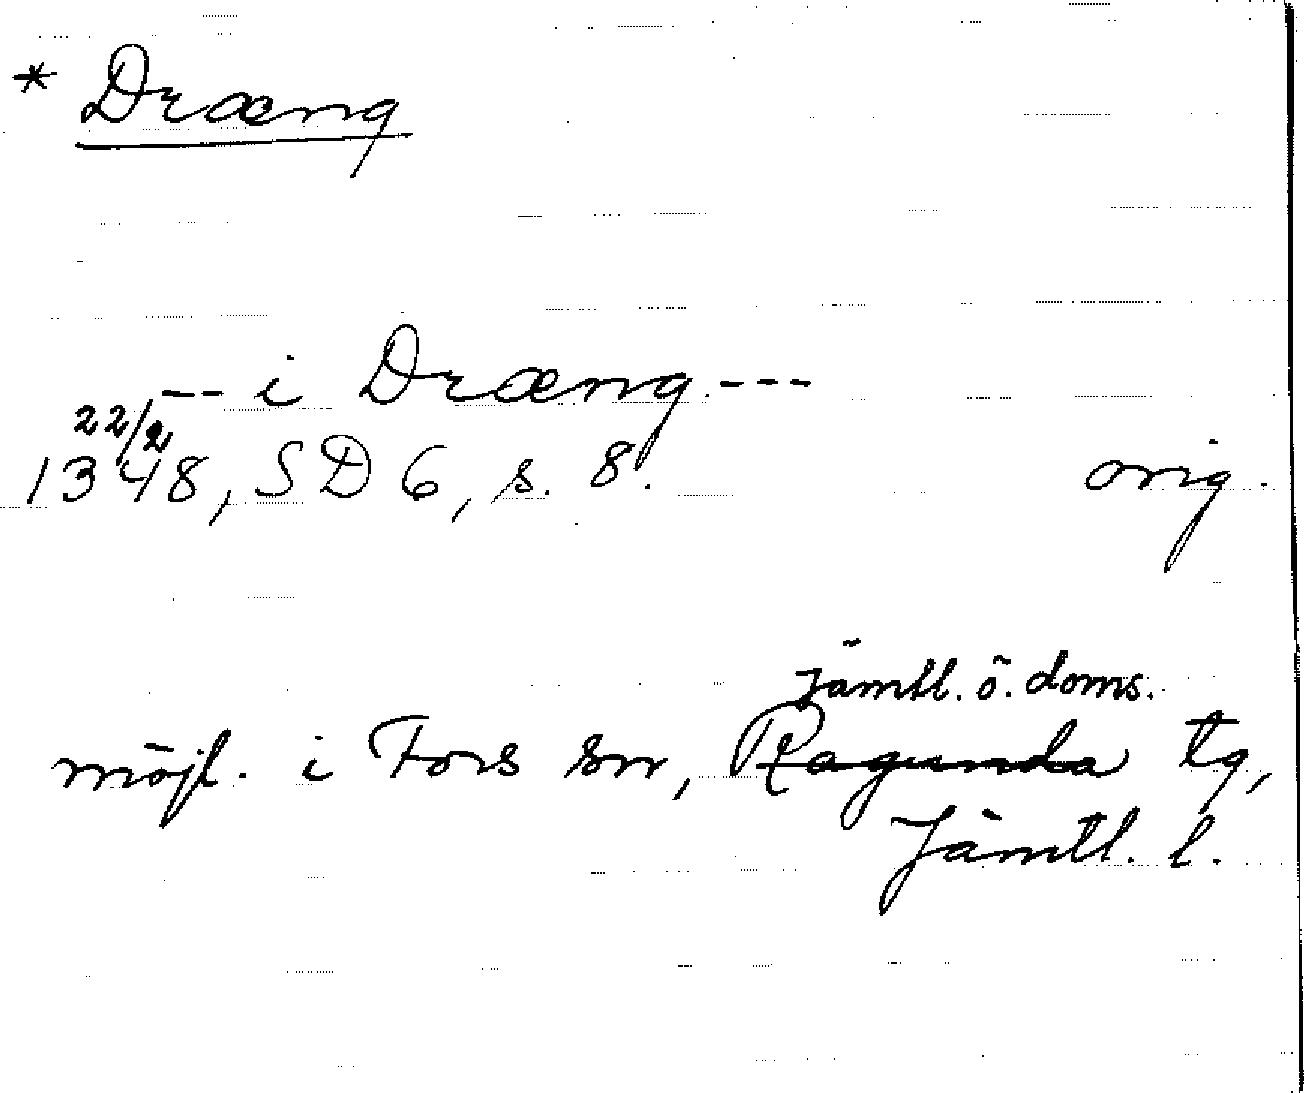 * Dræng
-- i Dræng. ---
22/2
1348, SD 6, s. 8. orig.
Jämtl. ö. doms.
möjl. i Fors sn, Ragunda tg,
Jämtl. l.